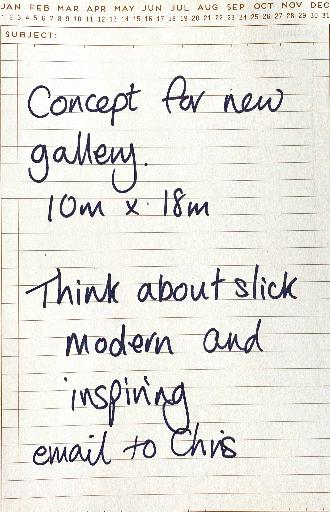 JAN FEB MAR APR MAY JUN JUL AUG SEP OCT NOV DEC
1 2 3 4 5 6 7 8 9 10 11 12 13 14 15 16 17 18 19 20 21 22 23 24 25 26 27 28 29 30 31
SUBJECT:
Concept for new
gallery.
10m x 18m
Think about slick
modern and
inspiring
email to Chris